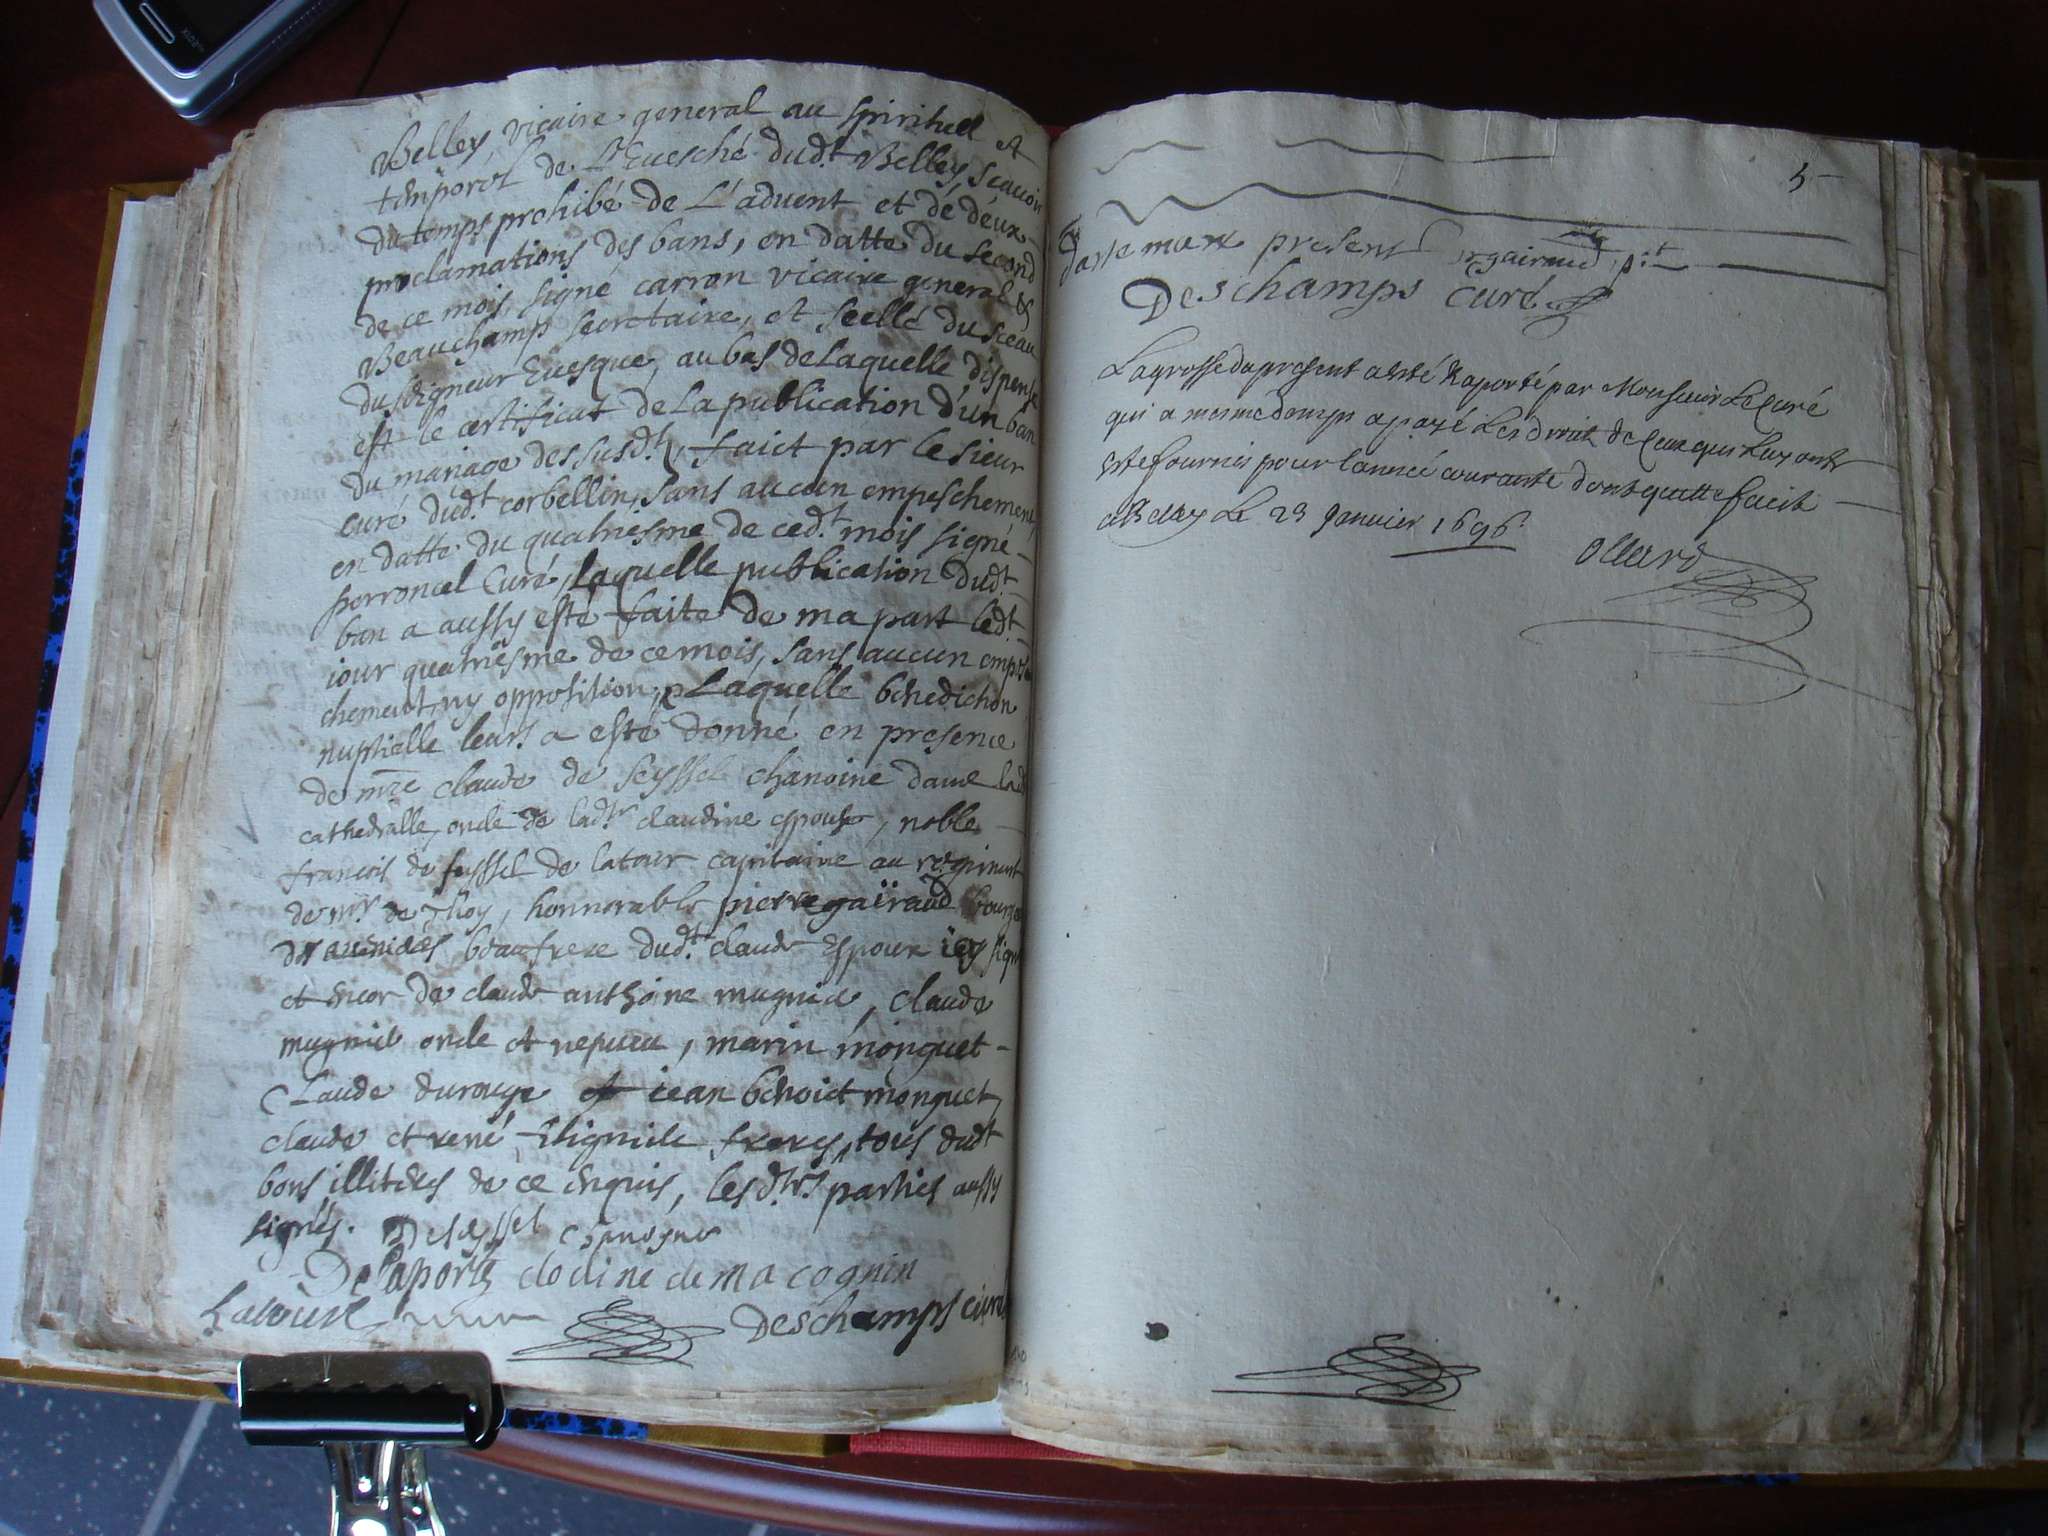 Belley, vicaire general au spirituel et
temporel de L'Euesché dud.t Belley scauoir
du temps prohibé de L'aduent et de deux
proclamations des bans, en datte du second
de ce mois, signé carron vicaire general &
Beauchamp secretaire, et scellé du sceau
du seigneur Euesque, au bas de laquelle dispense
est le certificat de la publication d'un ban
du mariage des susd.t, faict par le sieur
curé dud.t corbellin, sans aucun empeschement,
en datte du quatriesme de ced.t mois signé
perroncel Curé, laquelle publication dud.t
ban a aussy esté faite de ma part led.t
iour quatriesme de ce mois, sans aucun empes
chement ny opposition, Laquelle benediction
nuptielle leurs a esté donné en presence
de mre claude de seyssel chanoine dans lad
cathedralle, oncle de lad.te claudine espouse, noble
francois de seyssel de latour capitaine au regiment
de mr de thoy, honnorable pierre gaïraud bourg
beaufrere dud.t claude Espoux icy sign
et encor de claude anthoine mugnie, claude
mugnie oncle et nepueu, marin monguet
Claude durouge et iean benoict monguet,
claude et rené freres, tous dud.t
bons illiteres de ce enquis, les d.tes parties aussy
signés. De seyssel chanoyne
Delaporte clodine de macognin
Latour Deschamps curé
5
present gairaud p.nt
Deschamps curé
La grosse du present a esté raporté par Monsieur Le Curé
qui a mesme temps a payé Les droit de ceux qui luy ont
esté fournis pour l'année courante dont quitte faict
a Belley Le 23 Janvier 1696
Ollard